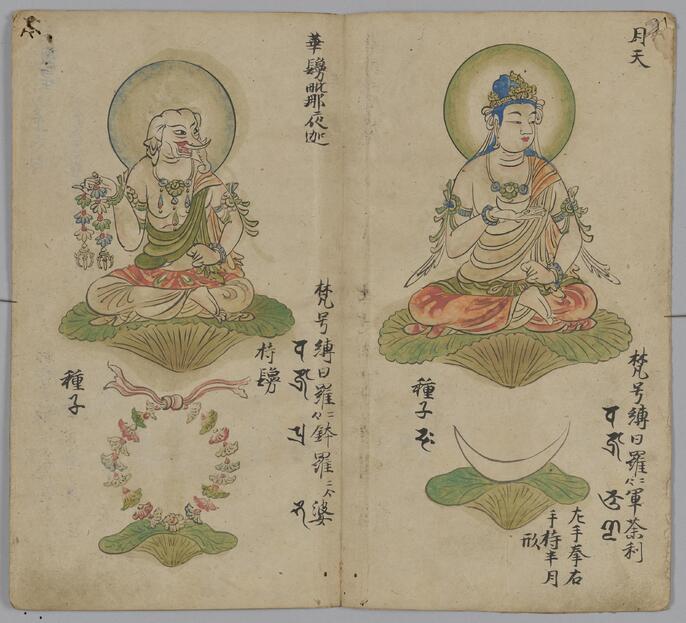 月天
梵号縛日羅二合軍荼利
種子
左手拳右
手持半月
形
華鬘毗那夜迦
梵号縛日羅二合鉢羅二合婆
持鬘
種子